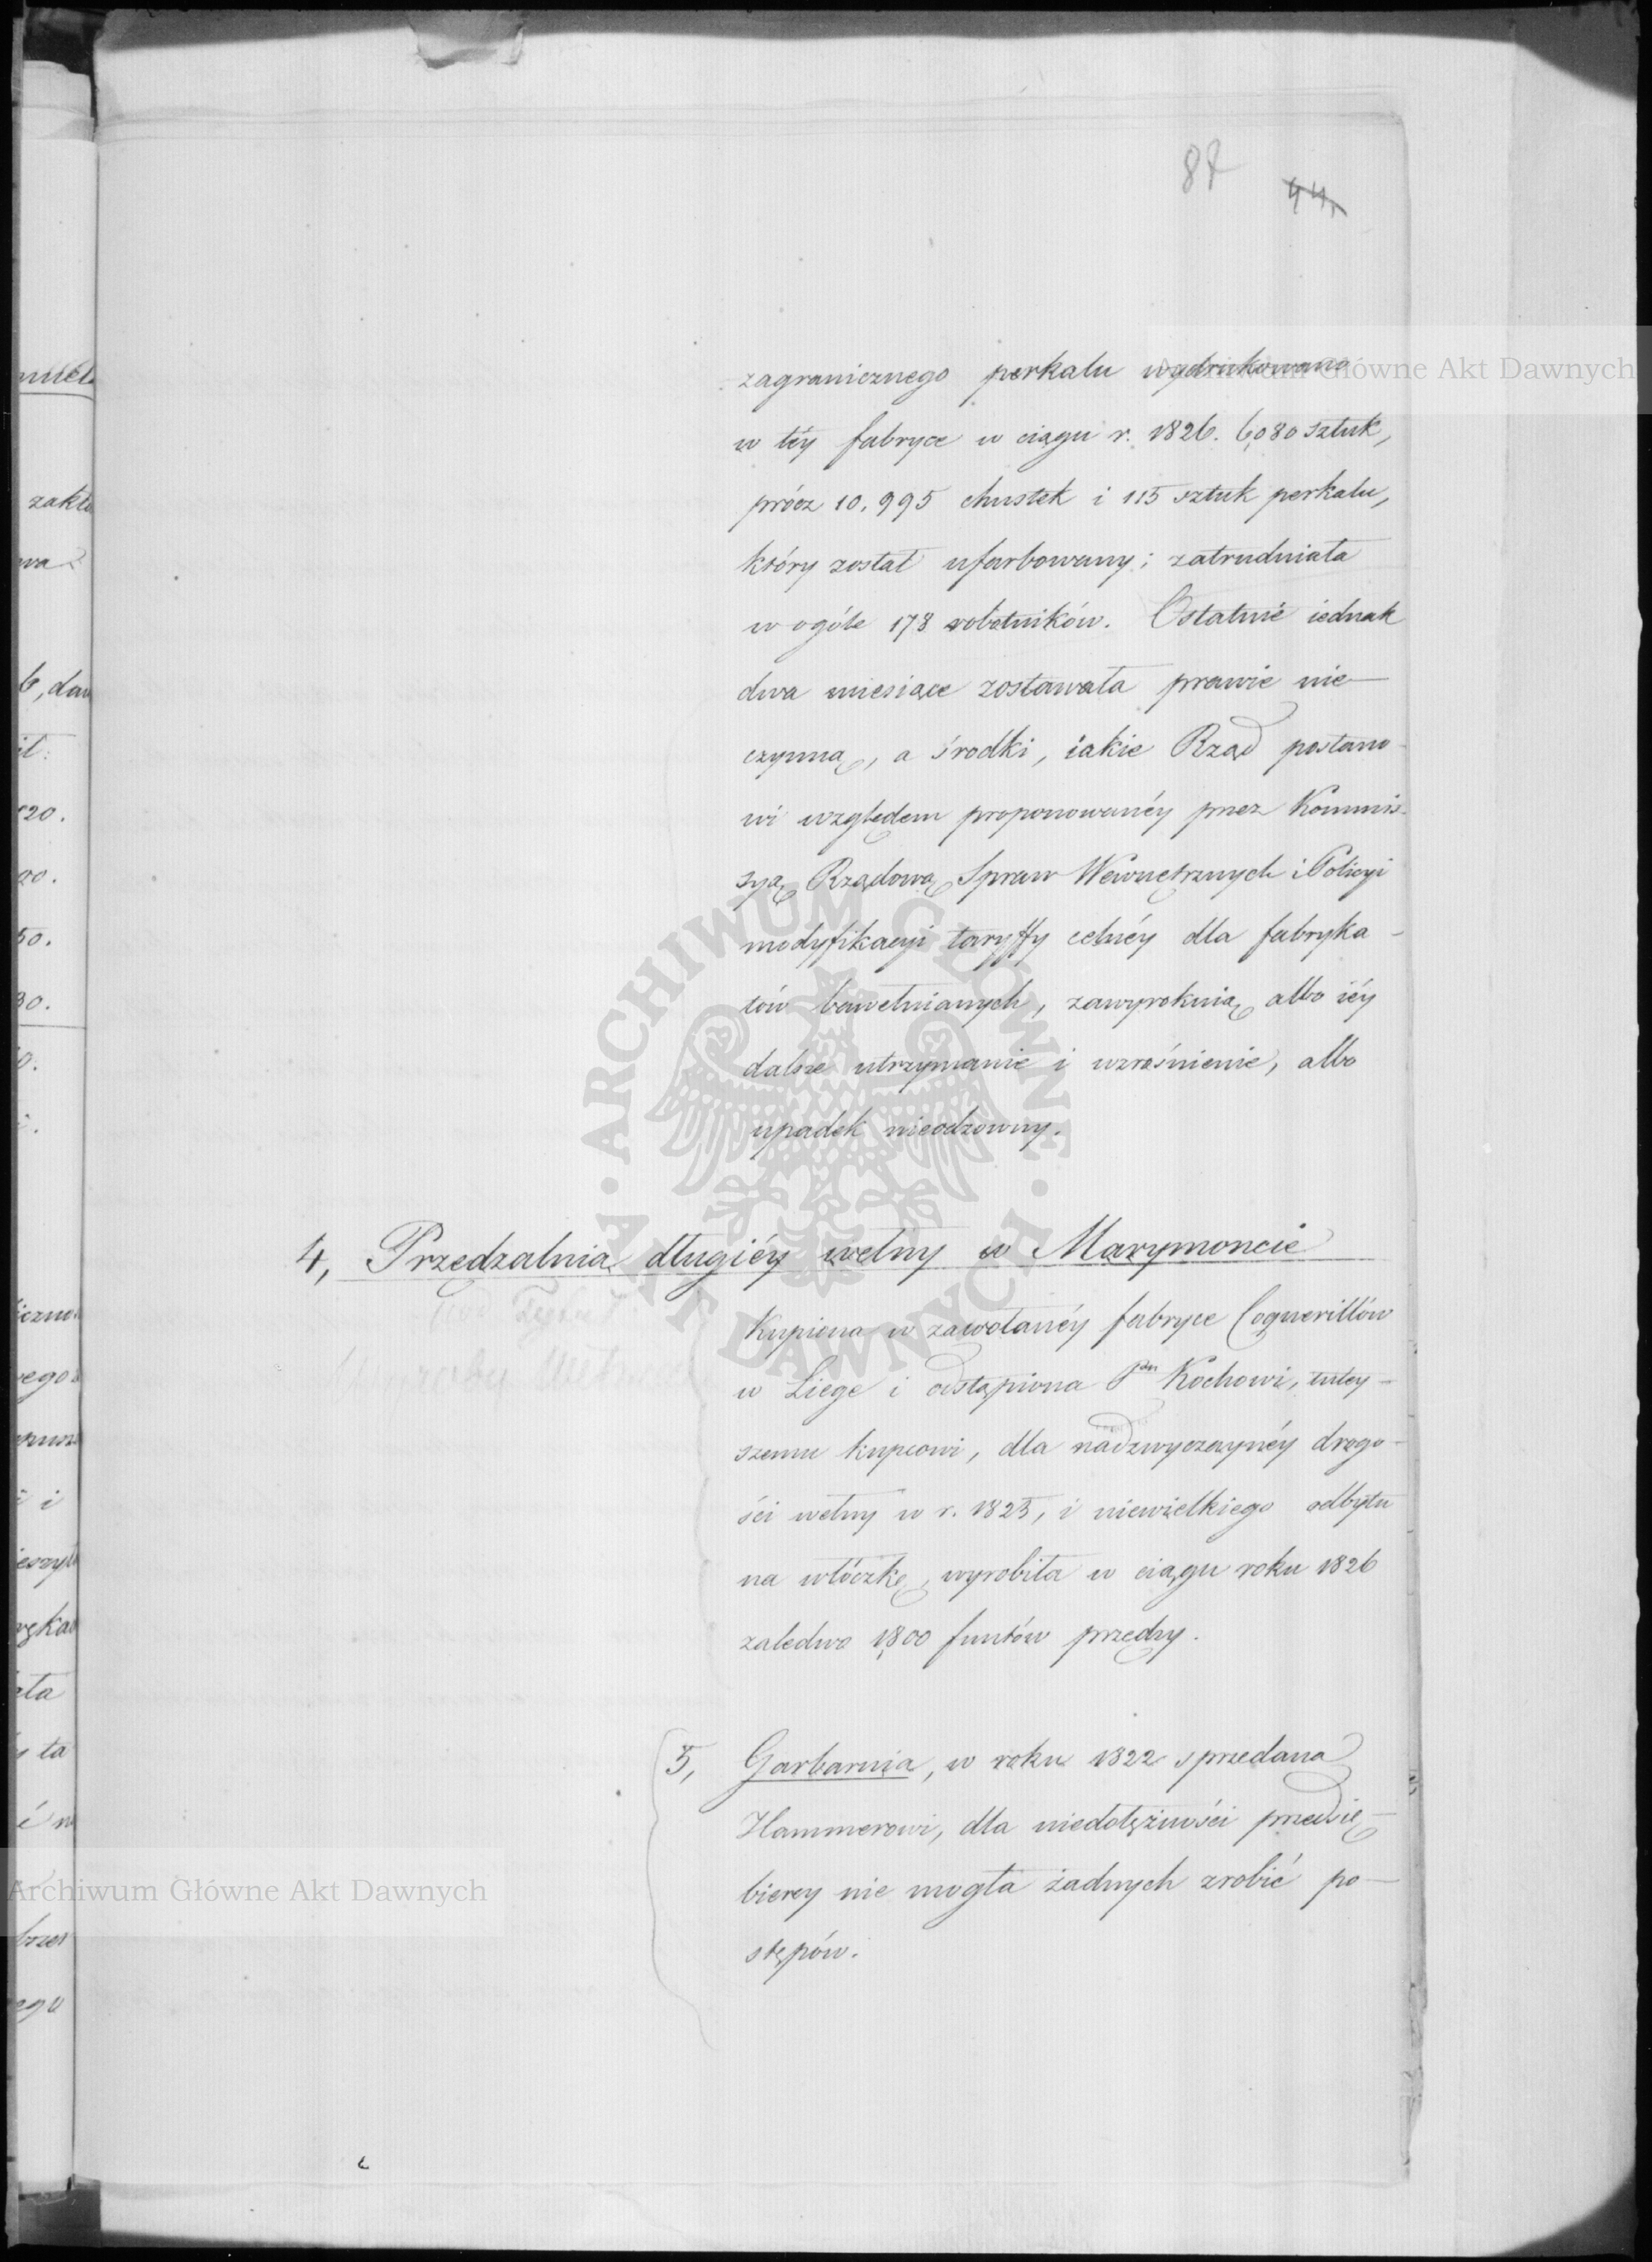 87 44,
zagranicznego perkalu wydrukowano
w téy fabryce w ciągu r. 1826. 6,080 sztuk,
prócz 10,995 chustek i 115 sztuk perkalu,
który został ufarbowany; zatrudniała
w ogóle 178 robotników. Ostatnie iednak
dwa miesiące zostawała prawie nie-
czynną, a środki, iakie Rząd postano-
wi względem proponowanéy przez Kommis-
syą Rządową Spraw Wewnętrznych i Policyi
modyfikacyi taryffy celnéy dla fabryka-
tów bawełnianych, zawyroknią albo iéy
dalsze utrzymanie i wzrośnienie, albo
upadek nieodzowny.
4, Przędzalnia długiéy wełny w Marymoncie
Kupiona w zawołanéy fabryce Coquerillów
w Liege i odstąpiona Pan Kochowi, tutey-
szemu kupcowi, dla nadzwyczaynéy drogo-
ści wełny w r. 1825, i niewielkiego odbytu
na włóczkę, wyrobiła w ciągu roku 1826
zaledwo 1,800 funtów przędzy.
5, Garbarnia, w roku 1822 sprzedana
Hammerowi, dla niedołężności przedsię-
biercy nie mogła żadnych zrobić po-
stępów.
Archiwum Główne Akt Dawnych
ARCHIWUM GŁÓWNE AKT DAWNYCH
Archiwum Główne Akt Dawnych